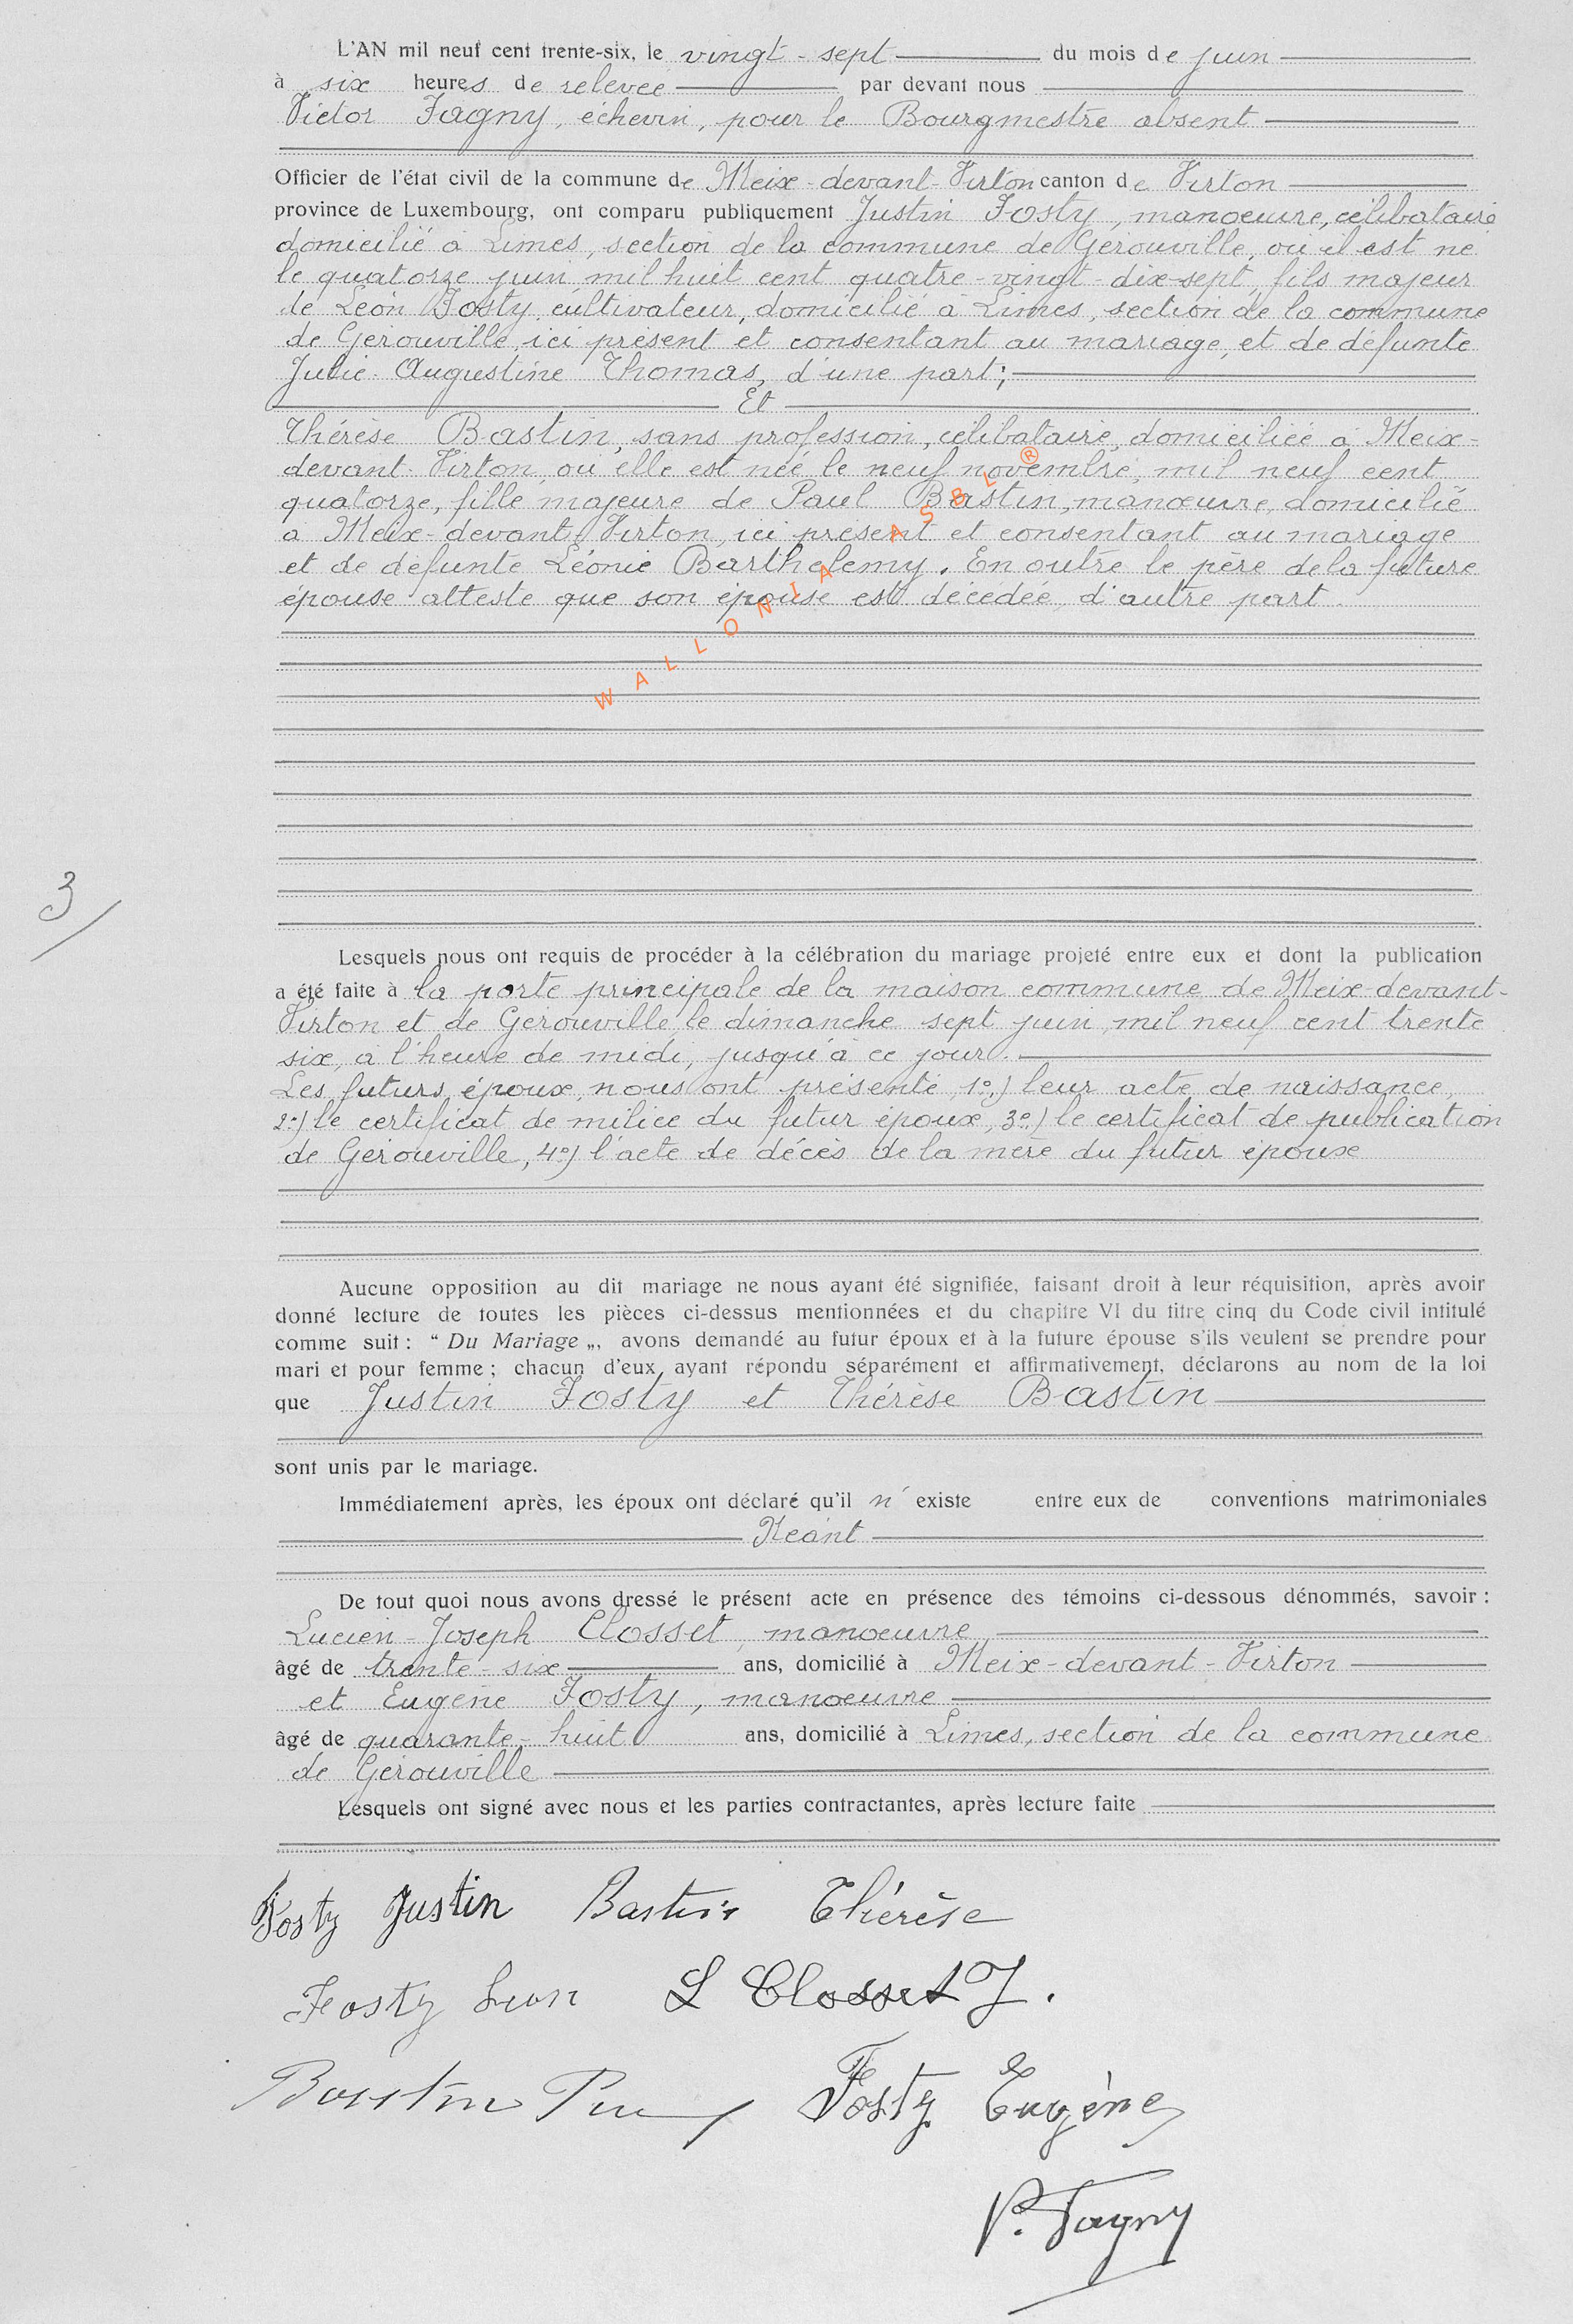 L'AN mil neuf cent trente-six, le vingt-sept du mois de juin
à six heures de relevée par devant nous
Victor Fagny, échevin, pour le Bourgmestre absent
Officier de l'état civil de la commune de Meix-devant-Virton canton de Virton
province de Luxembourg, ont comparu publiquement Justin Fosty, manoeuvre, célibataire
domicilié à Limes, section de la commune de Gérouville, où il est né
le quatorze juin mil huit cent quatre-vingt-dix-sept, fils majeur
de Léon Fosty, cultivateur, domicilié à Limes, section de la commune
de Gérouville, ici présent et consentant au mariage, et de défunte
Julie-Augustine Thomas, d'une part;
Et
Thérèse Bastin, sans profession, célibataire, domiciliée à Meix-
devant-Virton, où elle est née le neuf novembre, mil neuf cent
quatorze, fille majeure de Paul Bastin, manoeuvre, domicilié
à Meix-devant-Virton, ici présent et consentant au mariage
et de défunte Léonie Barthelemy. En outre le père de la future
épouse atteste que son épouse est décédée, d'autre part.
WALLONIA ASBL ®
3/
Lesquels nous ont requis de procéder à la célébration du mariage projeté entre eux et dont la publication
a été faite à la porte principale de la maison commune de Meix-devant-
Virton et de Gérouville, le dimanche sept juin mil neuf cent trente
six, à l'heure de midi, jusqu'à ce jour.
Les futurs époux, nous ont présenté, 1°) leur acte de naissance,
2°) le certificat de milice du futur époux, 3°) le certificat de publication
de Gérouville, 4°) l'acte de décès de la mère du futur époux
Aucune opposition au dit mariage ne nous ayant été signifiée, faisant droit à leur réquisition, après avoir
donné lecture de toutes les pièces ci-dessus mentionnées et du chapitre VI du titre cinq du Code civil intitulé
comme suit : " Du Mariage „, avons demandé au futur époux et à la future épouse s'ils veulent se prendre pour
mari et pour femme ; chacun d'eux ayant répondu séparément et affirmativement, déclarons au nom de la loi
que Justin Fosty et Thérèse Bastin
sont unis par le mariage.
Immédiatement après, les époux ont déclaré qu'il n'existe entre eux de conventions matrimoniales
Néant
De tout quoi nous avons dressé le présent acte en présence des témoins ci-dessous dénommés, savoir :
Lucien-Joseph Closset, manoeuvre
âgé de trente-six ans, domicilié à Meix-devant-Virton
et Eugène Fosty, manoeuvre
âgé de quarante-huit ans, domicilié à Limes, section de la commune
de Gérouville
Lesquels ont signé avec nous et les parties contractantes, après lecture faite
Fosty Justin Bastin Thérèse
Fosty Léon L Closset J.
Bastin Paul Fosty Eugène
V. Fagny